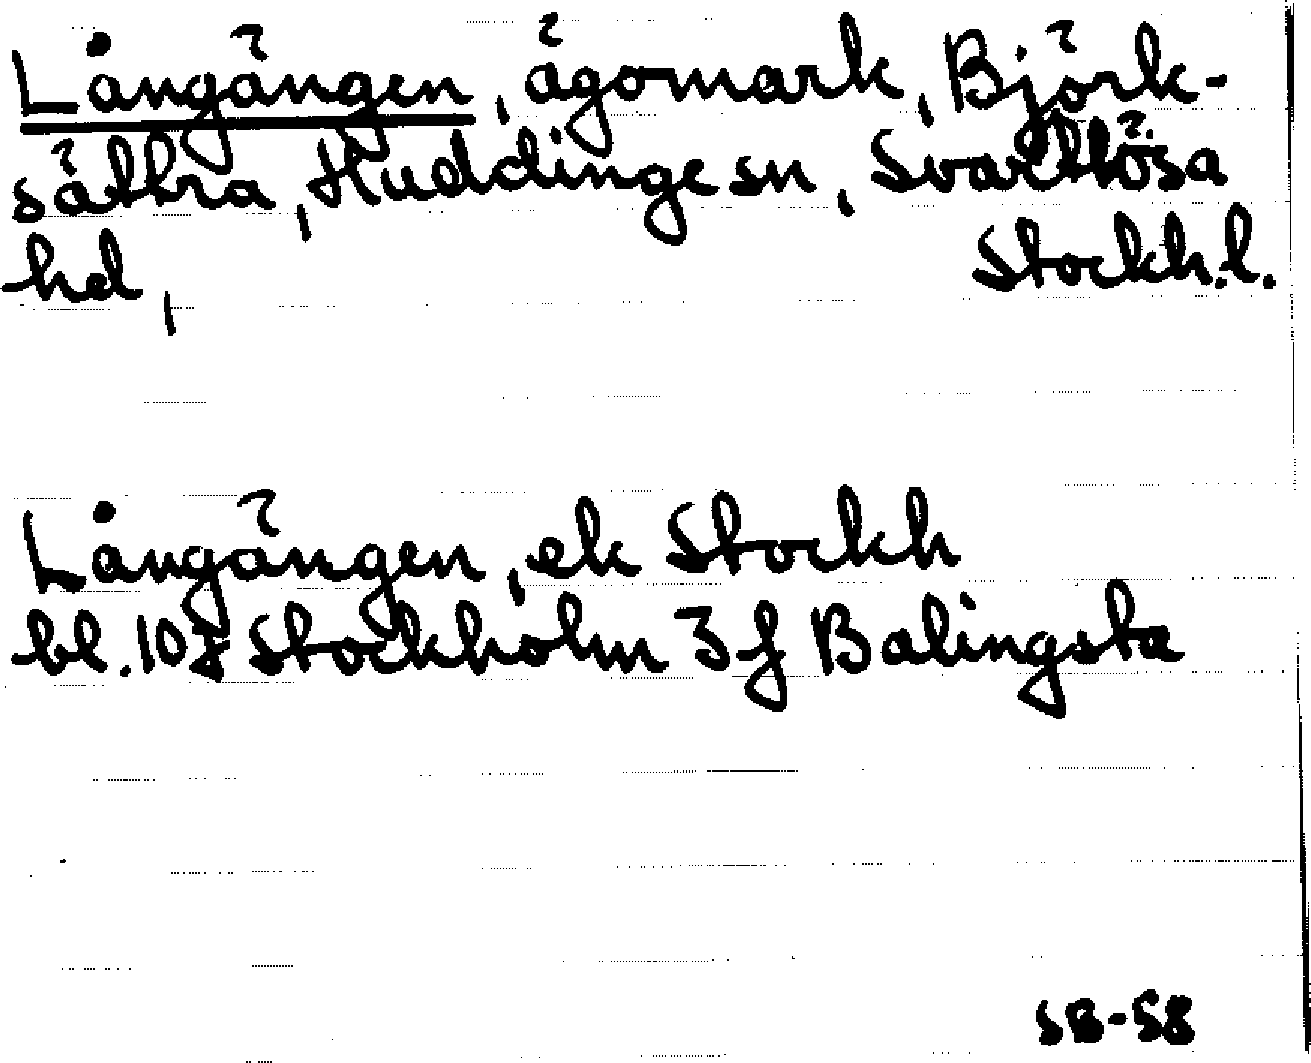 Långängen, ägomark, Björk-
sättra, Huddinge sn, Svartlösa
hd, Stockh.l.
Långängen, ek Stockh
bl. 10f Stockholm 3f Balingsta
SB-58